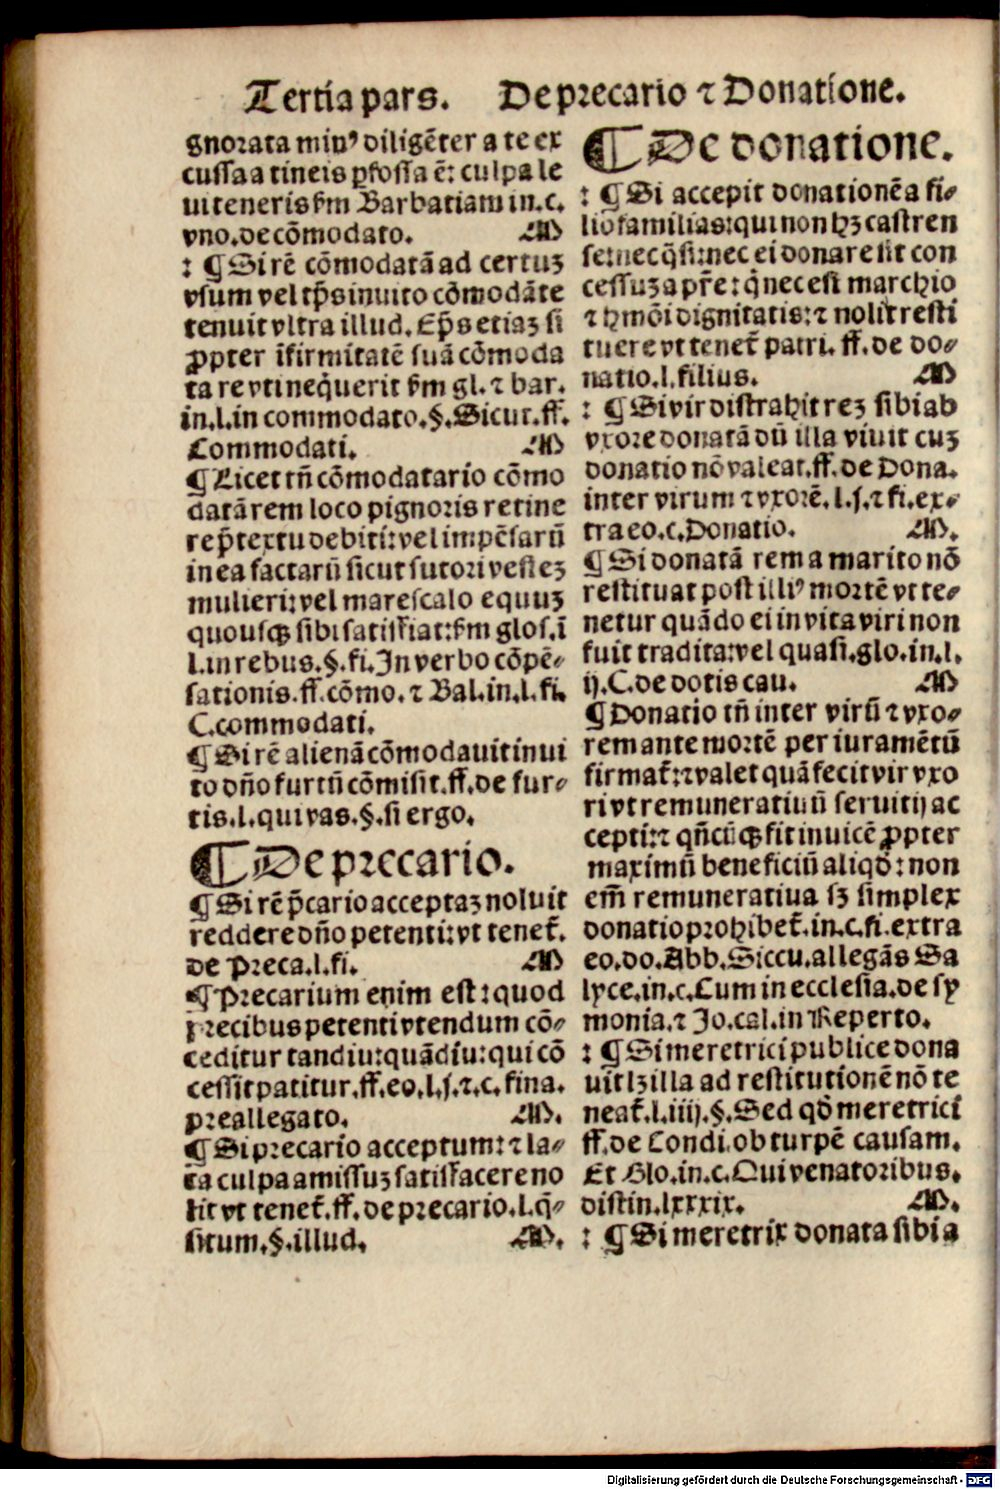 Tertia pars. De precario ⁊ Donatione.
gnorata minꝰ diligēter a te ex
cussa a tineis ꝑfossa ē: culpa le
ui teneris ẜm Barbatiam in.c.
vno.de cōmodato. M
: ¶ Si rē cōmodatā ad certuꝫ
vsum vel tp̄s inuito cōmodāte
tenuit vltra illud. Ep̄s etiaꝫ si
ꝓpter īfirmitatē suā cōmoda
ta re vti neq̇uerit ẜm gl. ⁊ bar.
in.l.in commodato.§.Sicut.ff.
Commodati. M
¶ Licet tn̄ cōmodatario cōmo
datā rem loco pignoris retine
re p̄textu debiti: vel impēsarū
in ea factarū sicut sutori vesteꝫ
mulieri: vel marescalo equuꝫ
quousqꝫ sibi satisfiat: ẜm glos.ī
l.in rebus.§.fi.In verbo cōpē⸗
sationis.ff.cōmo. ⁊ Bal.in.l.fi.
C.commodati.
¶ Si rē alienā cōmodauit inui
to dn̄o furtū cōmisit.ff.de fur⸗
tis.l.qui vas.§.si ergo.
¶ De precario.
¶ Si rē p̄cario acceptaꝫ noluit
reddere dn̄o petenti: vt teneṫ.
de Preca.l.fi. M
¶ Precarium enim est: quod
precibus petenti vtendum cō⸗
ceditur tandiu: quādiu: qui cō
cessit patitur.ff.eo.l.j.⁊.c.fina.
preallegato. M.
¶ Si precario acceptum: ⁊ la⸗
ta culpa amissuꝫ satisfacere no
lit vt teneṫ.ff. de precario.l.q̄⸗
situm.§.illud. M.
¶ De donatione.
: ¶ Si accepit donationē a fi⸗
liofamilias: qui non hꝫ castren
se: nec q̄si: nec ei donare sit con
cessuꝫ a pr̄e: q̇ nec est marchio
⁊ hmōi dignitatis: ⁊ nolit resti
tuere vt teneṫ patri. ff. de do⸗
natio.l.filius. M
: ¶ Si vir distrahit reꝫ sibi ab
vxore donatā dū illa viuit cuꝫ
donatio nō valeat.ff.de Dona.
inter virum ⁊ vxorē.l.j.⁊ fi.ex⸗
tra eo.c.Donatio. M.
¶ Si donatā rem a marito nō
restituat post illiꝰ mortē vt te⸗
netur quādo ei in vita viri non
fuit tradita: vel quasi.glo.in.l.
ij.C.de dotis cau. M
¶ Donatio tn̄ inter virū ⁊ vxo⸗
rem ante mortē per iuramētū
firmaṫ: ⁊ valet quā fecit vir vxo
ri vt remuneratiuū seruitij ac
cepti: ⁊ qn̄cūqꝫ fit inuicē ꝓpter
maximū beneficiū aliqḋ: non
em̄ remuneratiua sꝫ simplex
donatio prohibeṫ.in.c.fi.extra
eo.do.Abb.Siccu.allegās Sa
lyce.in.c.Cum in ecclesia.de sy
monia.⁊ Jo.cal.in Reperto.
: ¶ Si meretrici publice dona
uit lꝫ illa ad restitutionē nō te
neaṫ.l.iiij.§.Sed qḋ meretrici
ff.de Condi.ob turpē causam.
Et Glo.in.c.Qui venatoribus.
distin.lxxxix. M.
: ¶ Si meretrix donata sibi a
Digitalisierung gefördert durch die Deutsche Forschungsgemeinschaft - DFG